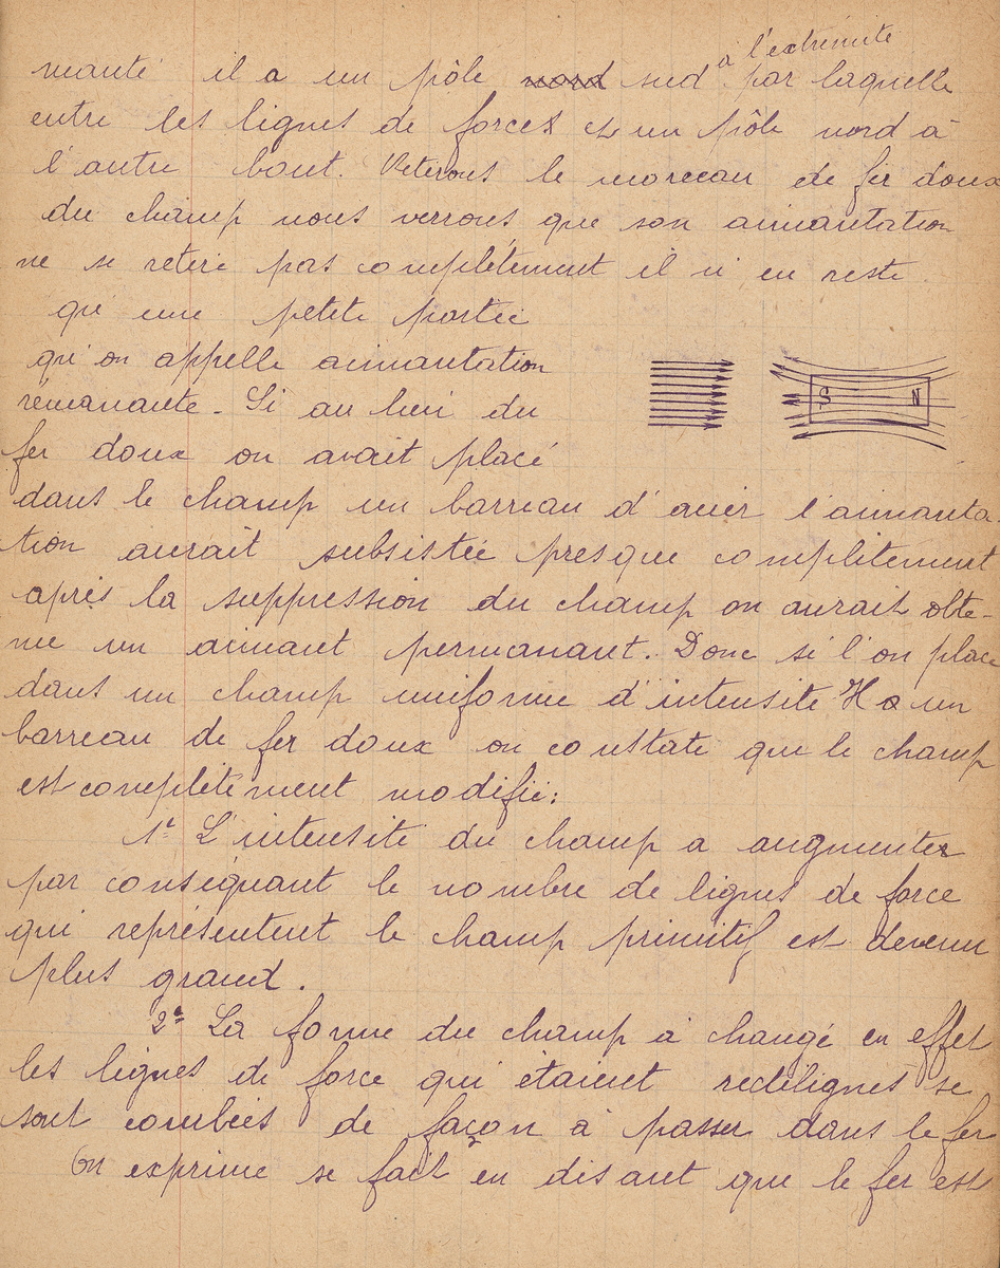 à l'extrémité
manté il a un pôle nord sud par laquelle
entre les lignes de forces et un pôle nord à
l'autre bout. Retirons le morceau de fer doux
du champ nous verrons que son aimantation
ne se retire pas complètement il n'en reste
qu'une petite partie
qu'on appelle aimantation
rémanante. Si au lieu du
fer doux on avait placé
dans le champ un barreau d'acier l'aimanta-
tion aurait subsistée presque complètement
après la suppression du champ on aurait obte-
nue un aimant permanant. Donc si l'on place
S N
dans un champ uniforme d'intensité H a un
barreau de fer doux on constate que le champ
est complètement modifié:
1° L'intensité du champ a augmenter
par conséquant le nombre de lignes de force
qui représentent le champ primitif est devenu
plus grand.
2° La forme du champ à changé en effet
les lignes de force qui étaient rectilignes se
sont courbées de façon à passer dans le fer
On exprime se fait en disant que le fer est